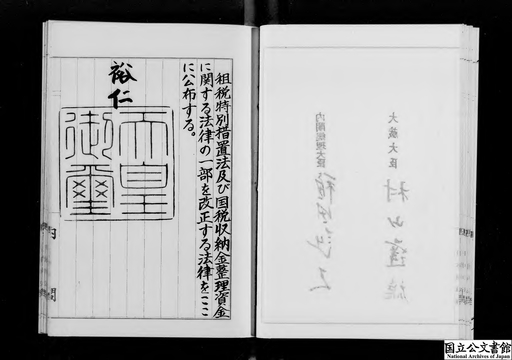 租税特別措置法及び国税収納金整理資金
に関する法律の一部を改正する法律をここ
に公布する。
裕仁
天皇
御璽
内閣
大蔵大臣 村山達雄
内閣総理大臣
国立公文書館
National Archives of Japan